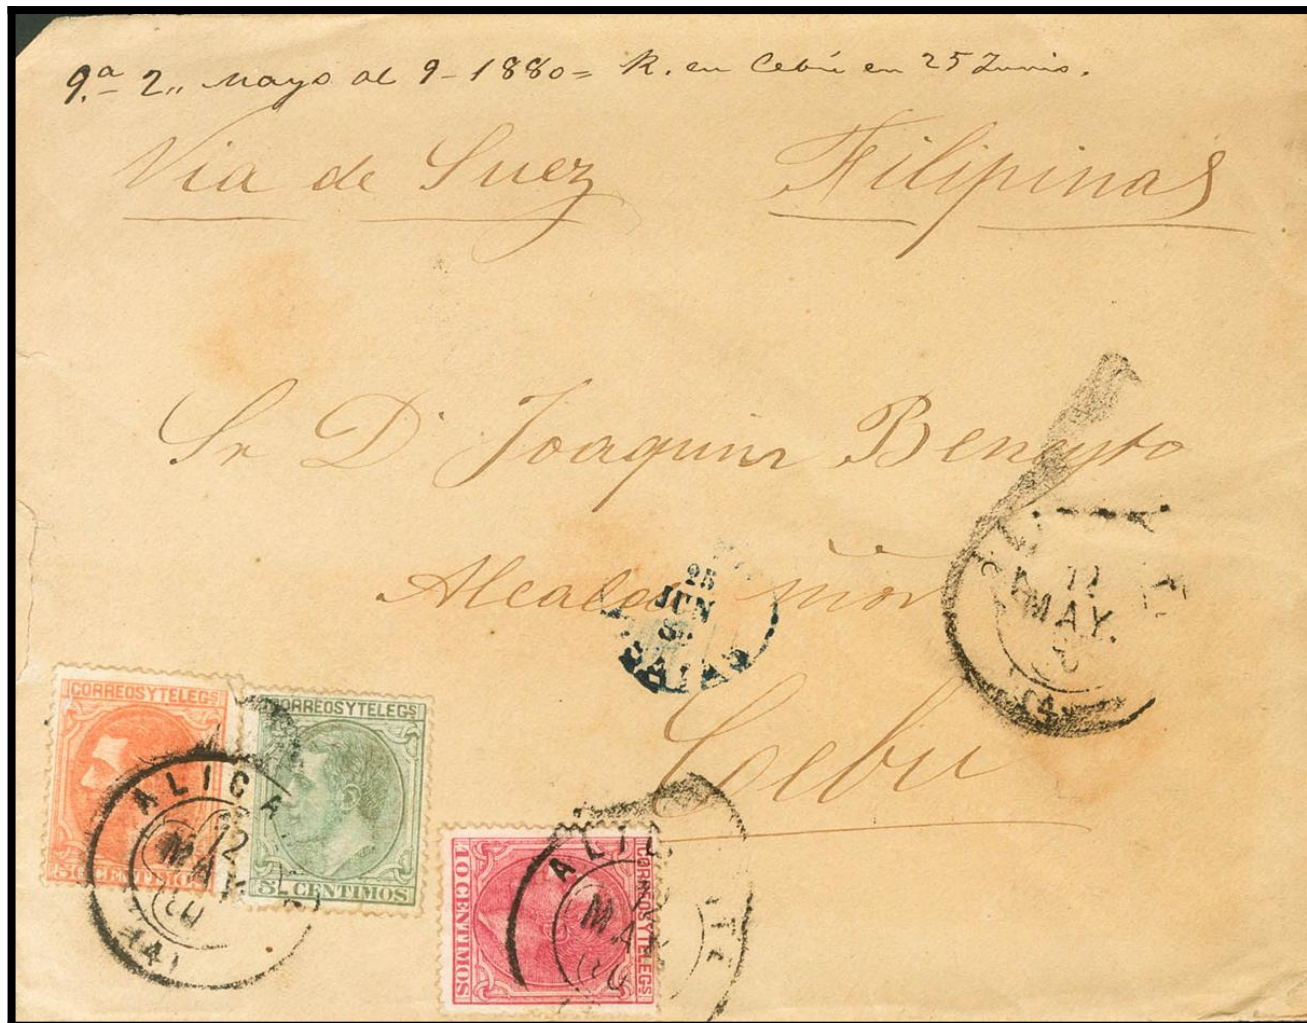 9.ª 2,, Mayo al 9-1880= R. en Cebú en 25 Junio.
Via de Suez Filipinas
Sr D. Joaquin Beneyto
Alcalde mór
Cebu
25
JUN
11
MAY.
(4)
CORREOS Y TELEGS
50 CENTIMOS
CORREOS Y TELEGS
5 CENTIMOS
ALICA
12
MAY
80
(4)
CORREOS Y TELEGS
10 CENTIMOS
MAY
80